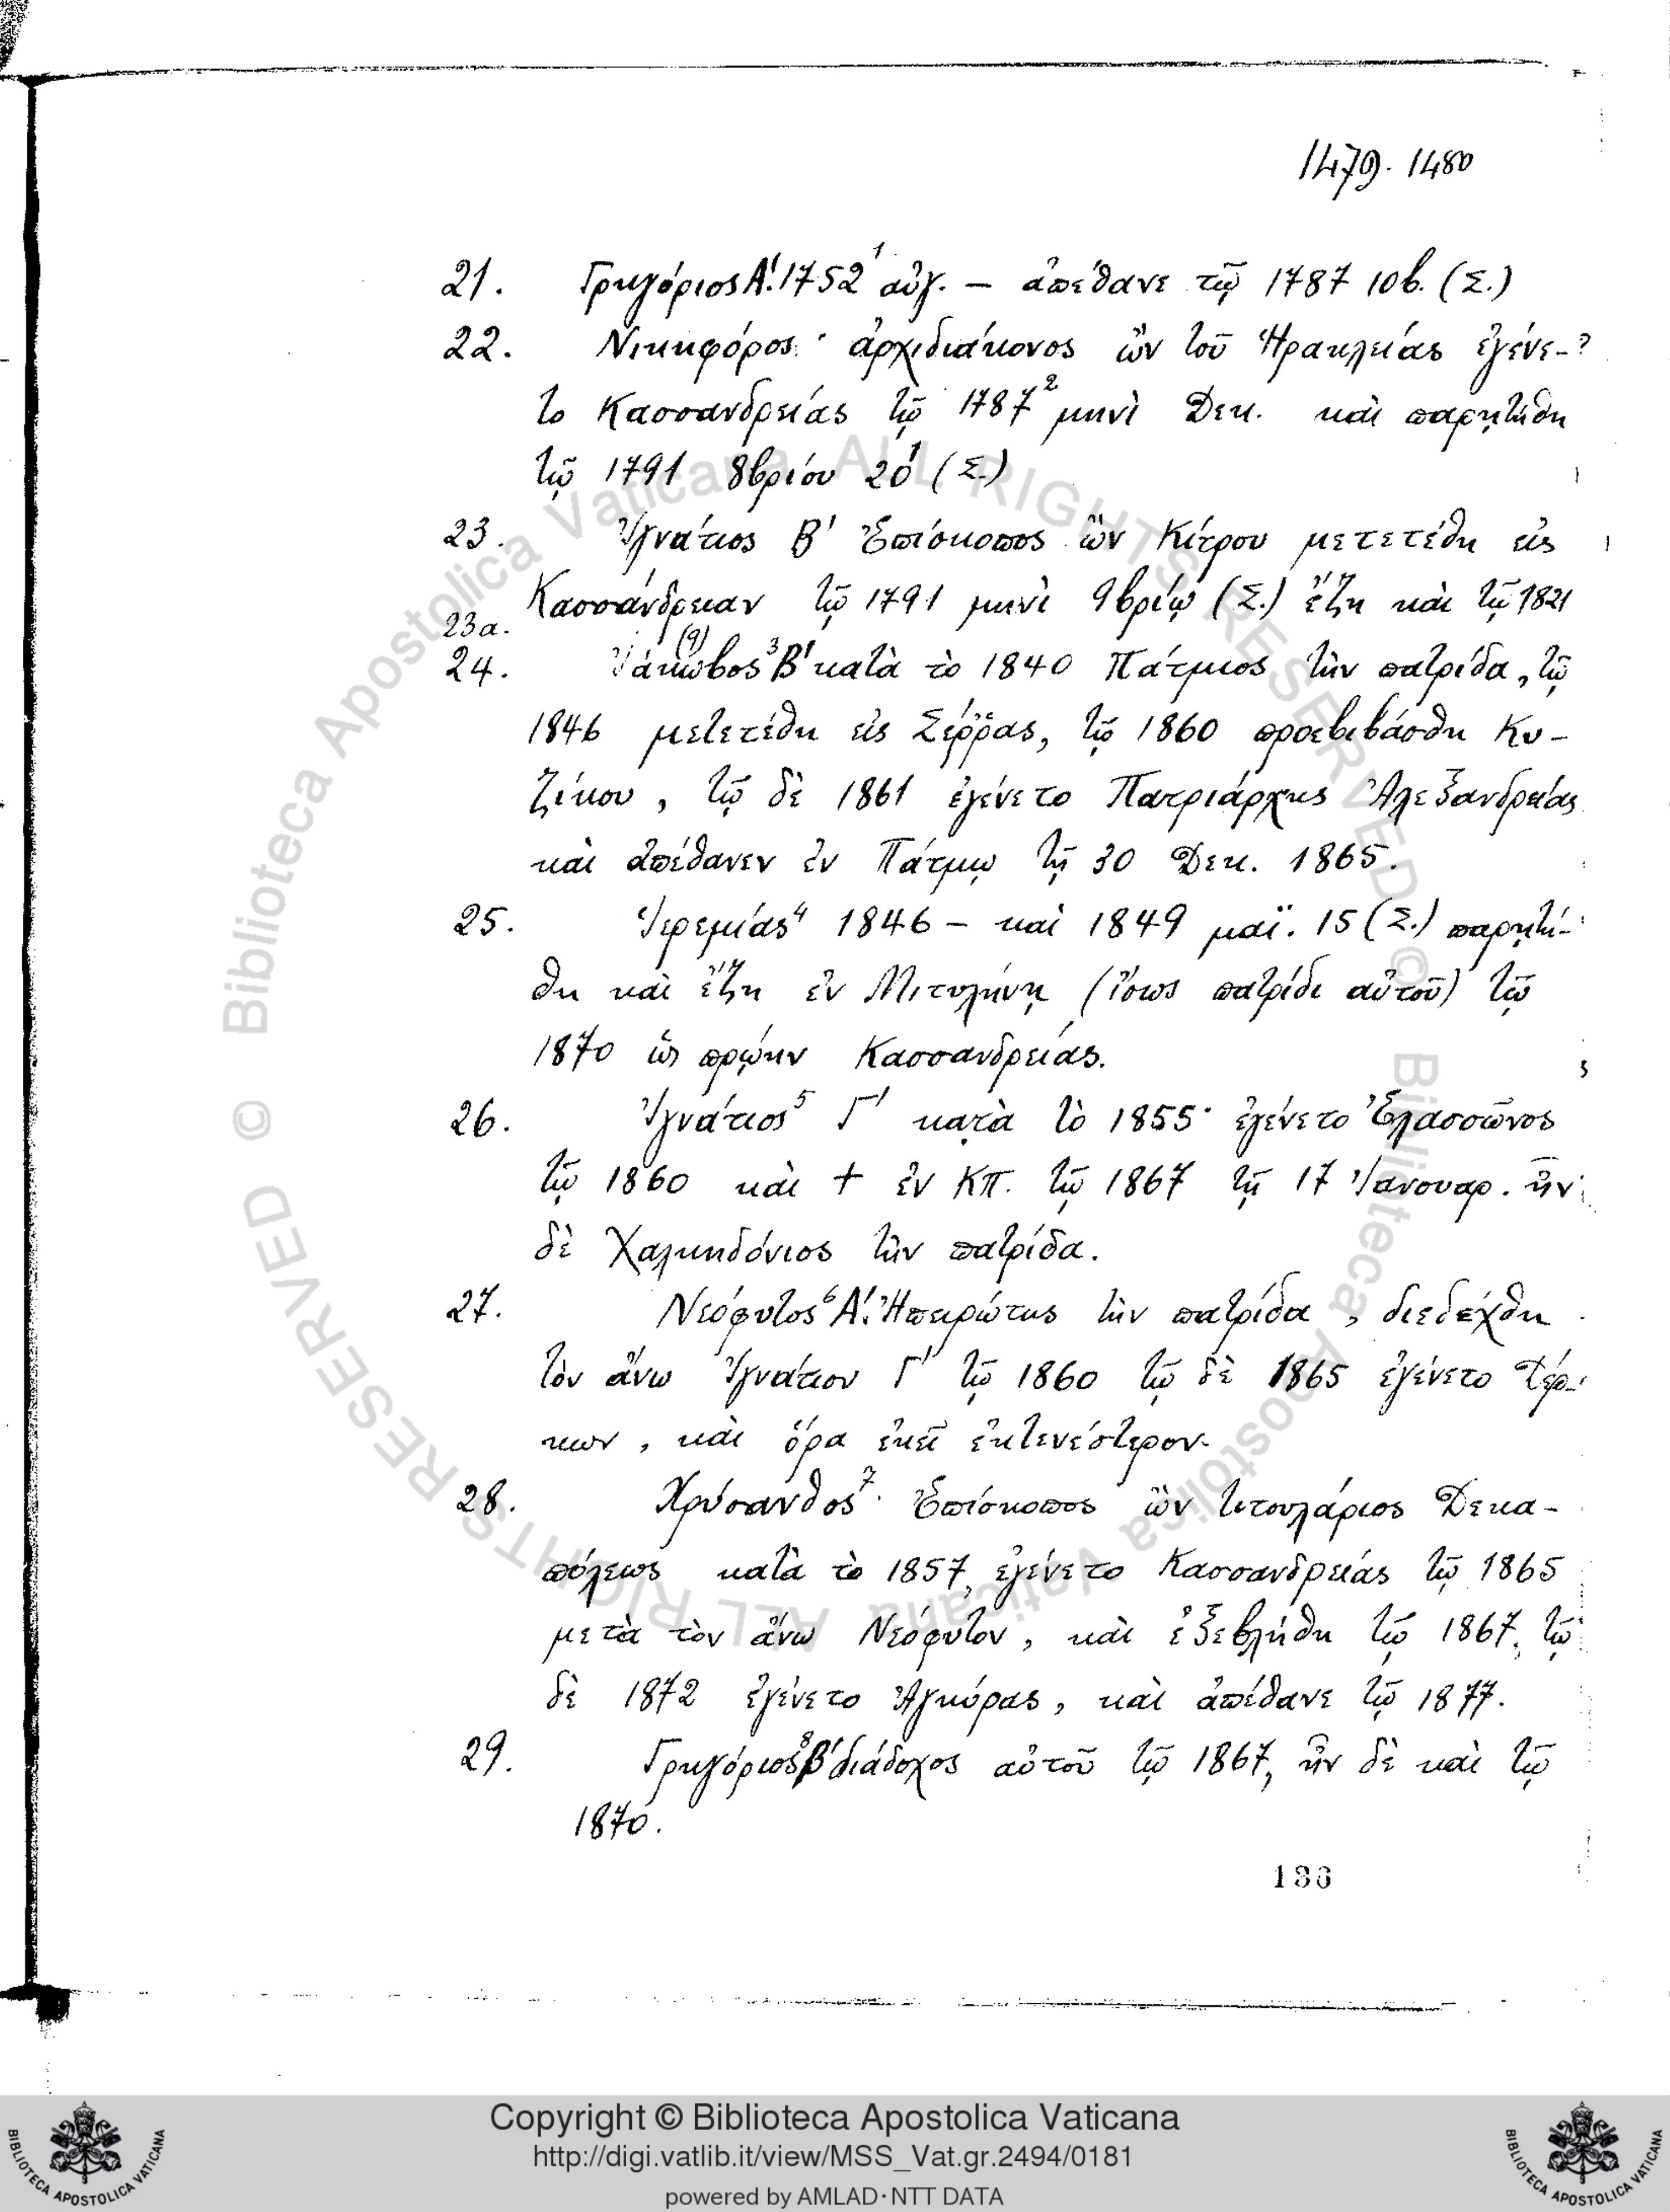 1479. 1480
21. Γρηγόριος Α'. 1752¹ αὐγ. — ἀπέθανε τῷ 1787 10β. (Σ.)
22. Νικηφόρος· ἀρχιδιάκονος ὢν τοῦ Ἡρακλείας ἐγένε-?
το Κασσανδρείας τῷ 1787² μηνὶ Δεκ. καὶ παρῃτήθη
τῷ 1791 8βρίου 20¹ (Σ.)
23. Ἰγνάτιος Β' Ἐπίσκοπος ὢν Κίτρου μετετέθη εἰς
Κασσάνδρειαν τῷ 1791 μηνὶ 9βρίῳ (Σ.) ἔζη καὶ τῷ 1821
23a. (9)
24. Ἰάκωβος³ Β' κατὰ τὸ 1840 Πάτμιος τὴν πατρίδα, τῷ
1846 μετετέθη εἰς Σέῤῥας, τῷ 1860 προεβιβάσθη Κυ-
ζίκου, τῷ δὲ 1861 ἐγένετο Πατριάρχης Ἀλεξανδρείας
καὶ ἀπέθανεν ἐν Πάτμῳ τῇ 30 Δεκ. 1865.
25. Ἱερεμίας⁴ 1846 — καὶ 1849 μαϊ. 15 (Σ.) παρῃτή-
θη καὶ ἔζη ἐν Μιτυλήνῃ (ἴσως πατρίδι αὐτοῦ) τῷ
1870 ὡς πρῴην Κασσανδρείας.
26. Ἰγνάτιος⁵ Γ' κατὰ τὸ 1855· ἐγένετο Ἐλασσῶνος
τῷ 1860 καὶ + ἐν ΚΠ. τῷ 1867 τῇ 17 Ἰανουαρ. ἦν
δὲ Χαλκηδόνιος τὴν πατρίδα.
27. Νεόφυτος⁶ Α'. Ἠπειρώτης τὴν πατρίδα, διεδέχθη
τὸν ἄνω Ἰγνάτιον Γ' τῷ 1860 τῷ δὲ 1865 ἐγένετο Δέρ-
κων, καὶ ὅρα ἐκεῖ ἐκτενέστερον.
28. Χρύσανθος⁷· Ἐπίσκοπος ὢν τιτουλάριος Δεκα-
πόλεως κατὰ τὸ 1857, ἐγένετο Κασσανδρείας τῷ 1865
μετὰ τὸν ἄνω Νεόφυτον, καὶ ἐξεβλήθη τῷ 1867, τῷ
δὲ 1872 ἐγένετο Ἀγκύρας, καὶ ἀπέθανε τῷ 1877.
29. Γρηγόριος⁸ Β' διάδοχος αὐτοῦ τῷ 1867, ἦν δὲ καὶ τῷ
1870.
136
© Biblioteca Apostolica Vaticana ALL RIGHTS RESERVED
© Biblioteca Apostolica Vaticana ALL RIGHTS RESERVED
Copyright © Biblioteca Apostolica Vaticana
http://digi.vatlib.it/view/MSS_Vat.gr.2494/0181
powered by AMLAD·NTT DATA
BIBLIOTECA APOSTOLICA VATICANA
BIBLIOTECA APOSTOLICA VATICANA